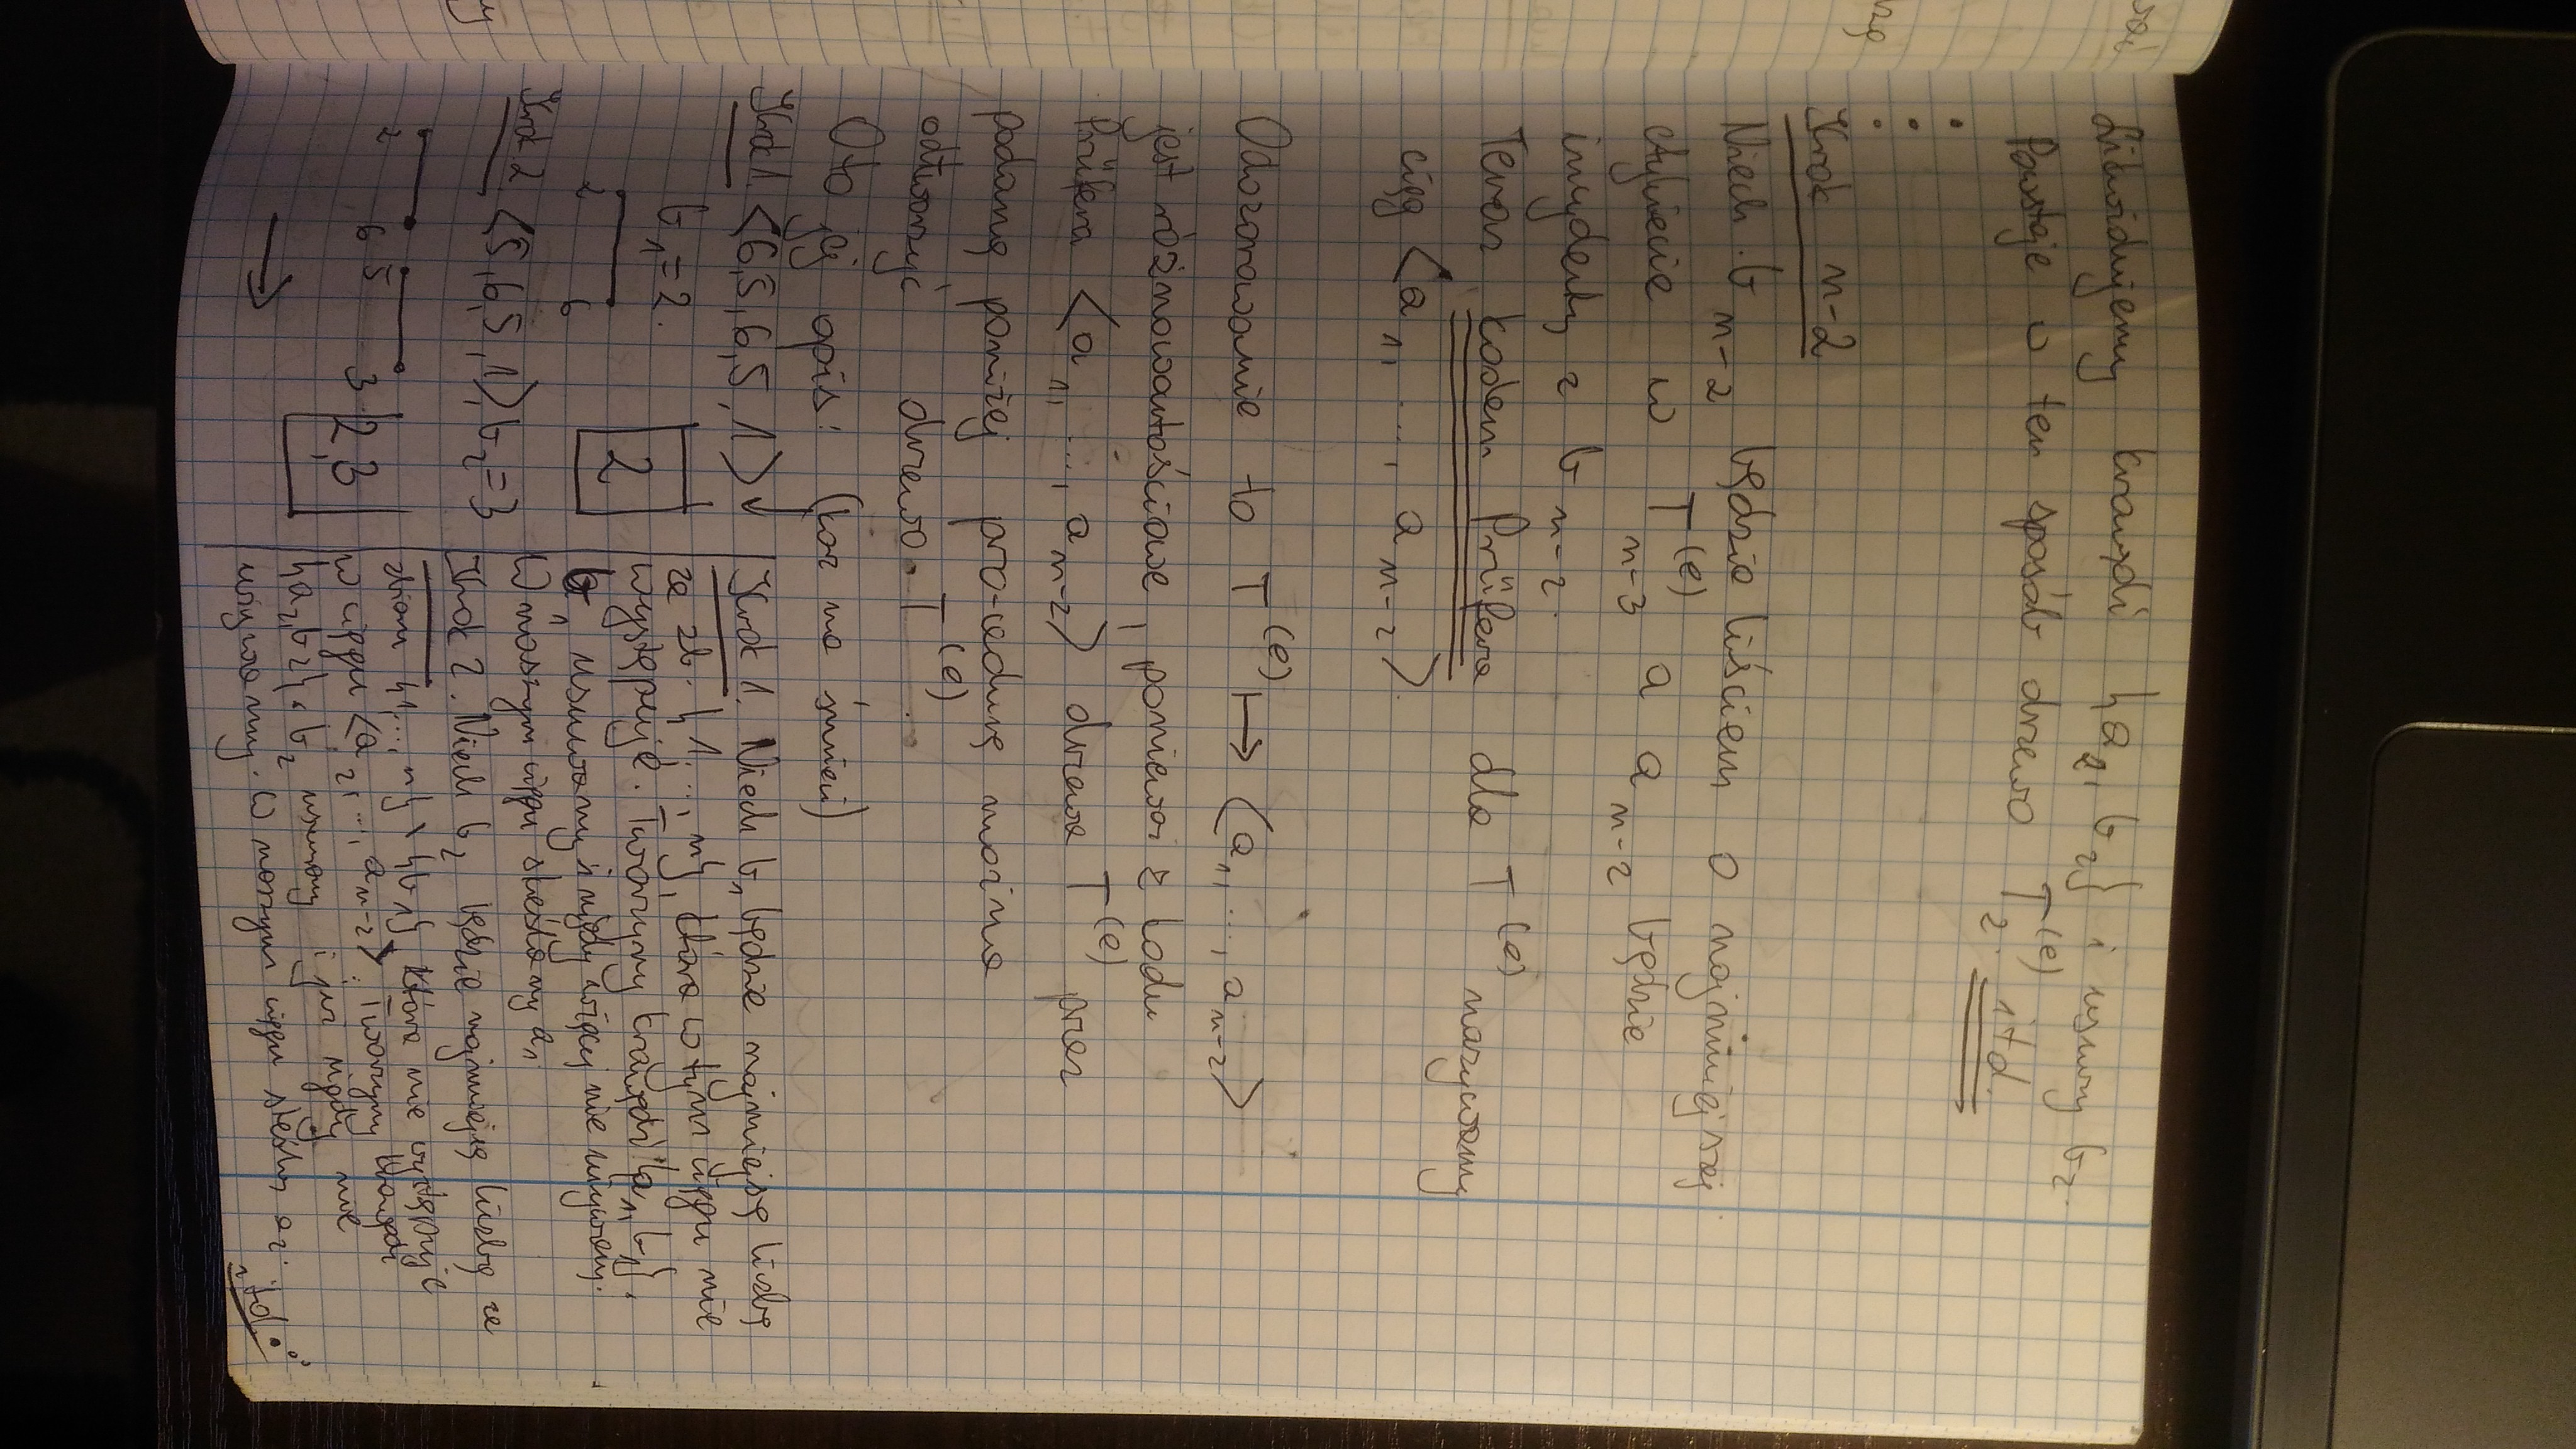 Likwidujemy krawędź {a₂, b₂} i usuwy b₂.
Powstaje w ten sposób drzewo T₂^(e). itd.
Krok n-2
Niech b_{n-2} będzie liściem o najmniejszej
etykiecie w T^(e)_{n-3} a a_{n-2} będzie
incydentny z b_{n-2}.
Teraz kodem Prüfera dla T^(e) nazywamy
ciąg <a₁, ..., a_{n-2}>.
Odwzorowanie to T^(e) ↦ <a₁, ..., a_{n-2}>
jest różnowartościowe, ponieważ z kodu
Prüfera <a₁, ..., a_{n-2}> drzewa T^(e) przez
podaną poniżej pro-cedurę można
odtworzyć drzewo T^(e).
Oto jej opis: (kosz na śmieci)
Krok 1. <6,5,6,5,1>
b₁=2.
2
2 6
Krok 2 <5,6,5,1>, b₂=3
2 6 5 3
2,3
Krok 1. Niech b₁ będzie najmniejszą liczbą
ze zb. {1,...,n}, która w tym ciągu nie
występuje. Tworzymy krawędź {a₁, b₁}.
b₁ usuwamy i nigdy więcej nie używamy.
W naszym ciągu skreślamy a₁
Krok 2. Niech b₂ będzie najmniejszą liczbą ze
zbioru {1...,n} \ {b₁}, która nie występuje
w ciągu <a₂,..., a_{n-2}>. Tworzymy krawędź
{a₂,b₂}. b₂ usuwamy i już nigdy nie
używamy. W naszym ciągu skreślmy a₂.
itd...